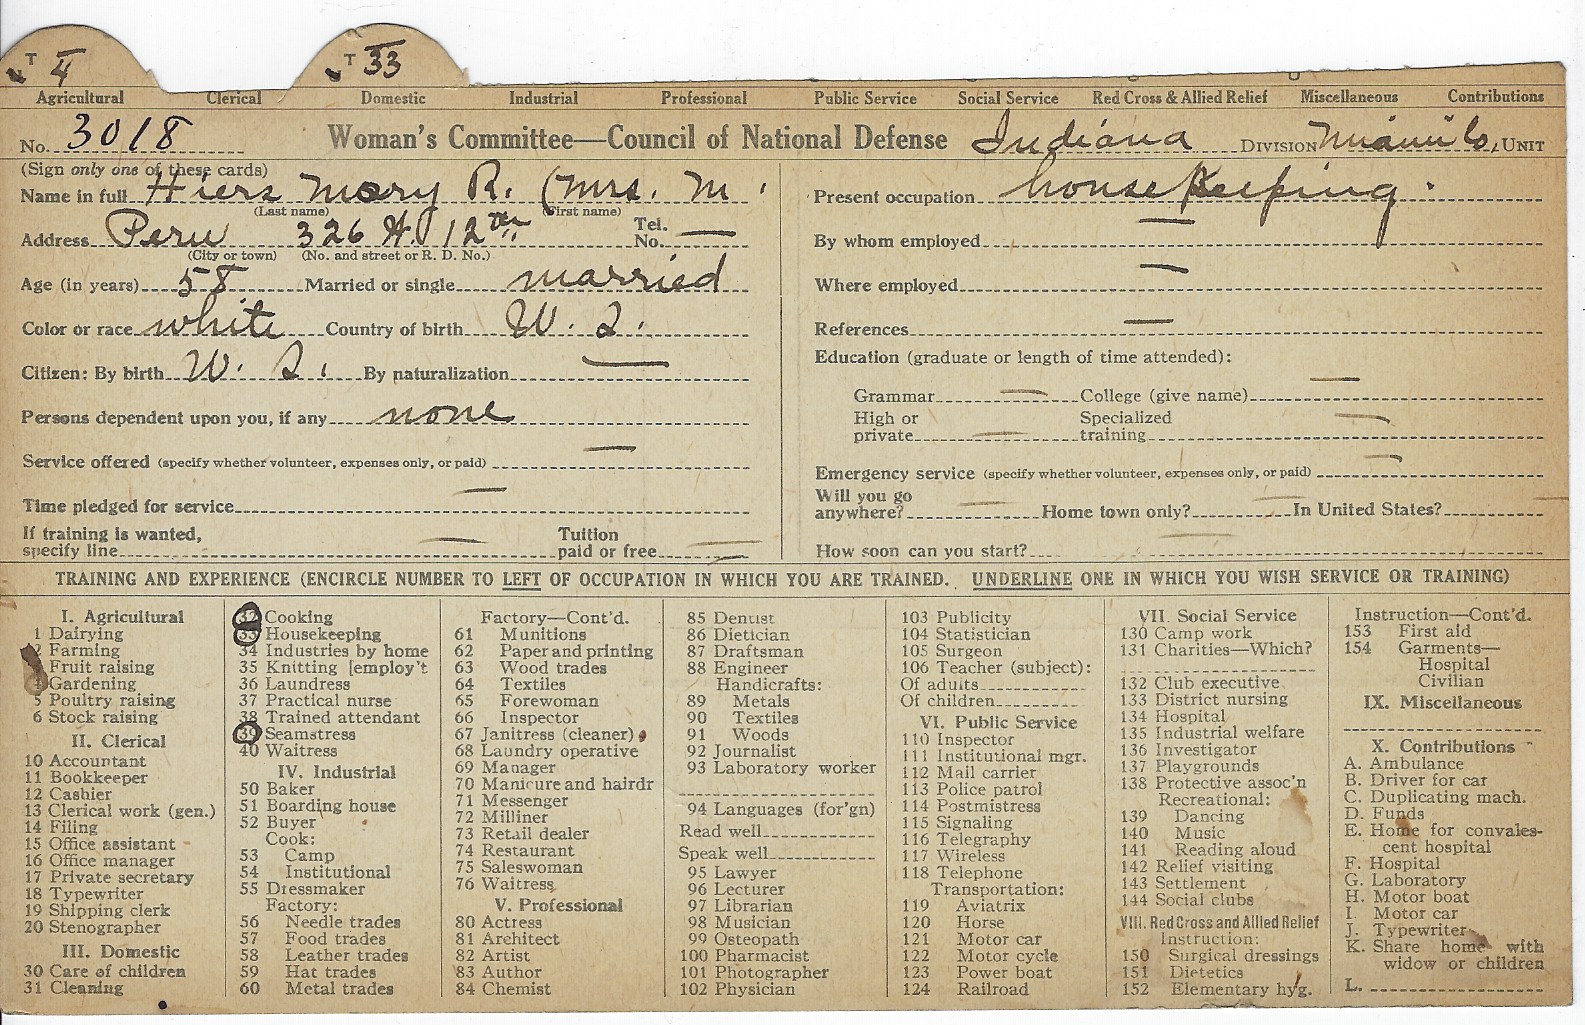 T 4 T 33
Agricultural Clerical Domestic Industrial Professional Public Service Social Service Red Cross & Allied Relief Miscellaneous Contributions
No. 3018 Woman's Committee—Council of National Defense Indiana DIVISION Miami Co, UNIT
(Sign only one of these cards)
Name in full Hiers Mary R. (Mrs. M.
(Last name) (First name)
Address Peru 326 W. 12th Tel. No. —
(City or town) (No. and street or R. D. No.)
Age (in years) 58 Married or single married
Color or race white Country of birth U. S.
Citizen: By birth U. S. By naturalization —
Persons dependent upon you, if any none
Service offered (specify whether volunteer, expenses only, or paid) —
Time pledged for service —
If training is wanted, Tuition
specify line — paid or free —
Present occupation house keeping.
By whom employed —
Where employed —
References —
Education (graduate or length of time attended):
Grammar — College (give name) —
High or Specialized
private — training —
Emergency service (specify whether volunteer, expenses only, or paid) —
Will you go
anywhere? — Home town only? — In United States? —
How soon can you start? —
TRAINING AND EXPERIENCE (ENCIRCLE NUMBER TO LEFT OF OCCUPATION IN WHICH YOU ARE TRAINED. UNDERLINE ONE IN WHICH YOU WISH SERVICE OR TRAINING)
I. Agricultural
1 Dairying
2 Farming
Fruit raising
4 Gardening
5 Poultry raising
6 Stock raising
II. Clerical
10 Accountant
11 Bookkeeper
12 Cashier
13 Clerical work (gen.)
14 Filing
15 Office assistant
16 Office manager
17 Private secretary
18 Typewriter
19 Shipping clerk
20 Stenographer
III. Domestic
30 Care of children
31 Cleaning
32 Cooking
33 Housekeeping
34 Industries by home
35 Knitting [employ't
36 Laundress
37 Practical nurse
38 Trained attendant
39 Seamstress
40 Waitress
IV. Industrial
50 Baker
51 Boarding house
52 Buyer
Cook:
53 Camp
54 Institutional
55 Dressmaker
Factory:
56 Needle trades
57 Food trades
58 Leather trades
59 Hat trades
60 Metal trades
Factory—Cont'd.
61 Munitions
62 Paper and printing
63 Wood trades
64 Textiles
65 Forewoman
66 Inspector
67 Janitress (cleaner)
68 Laundry operative
69 Manager
70 Manicure and hairdr
71 Messenger
72 Milliner
73 Retail dealer
74 Restaurant
75 Saleswoman
76 Waitress
V. Professional
80 Actress
81 Architect
82 Artist
83 Author
84 Chemist
85 Dentist
86 Dietician
87 Draftsman
88 Engineer
Handicrafts:
89 Metals
90 Textiles
91 Woods
92 Journalist
93 Laboratory worker
94 Languages (for'gn)
Read well
Speak well
95 Lawyer
96 Lecturer
97 Librarian
98 Musician
99 Osteopath
100 Pharmacist
101 Photographer
102 Physician
103 Publicity
104 Statistician
105 Surgeon
106 Teacher (subject):
Of adults
Of children
VI. Public Service
110 Inspector
111 Institutional mgr.
112 Mail carrier
113 Police patrol
114 Postmistress
115 Signaling
116 Telegraphy
117 Wireless
118 Telephone
Transportation:
119 Aviatrix
120 Horse
121 Motor car
122 Motor cycle
123 Power boat
124 Railroad
VII. Social Service
130 Camp work
131 Charities—Which?
132 Club executive
133 District nursing
134 Hospital
135 Industrial welfare
136 Investigator
137 Playgrounds
138 Protective assoc'n
Recreational:
139 Dancing
140 Music
141 Reading aloud
142 Relief visiting
143 Settlement
144 Social clubs
VIII. Red Cross and Allied Relief
Instruction:
150 Surgical dressings
151 Dietetics
152 Elementary hyg.
Instruction—Cont'd.
153 First aid
154 Garments—
Hospital
Civilian
IX. Miscellaneous
X. Contributions
A. Ambulance
B. Driver for car
C. Duplicating mach.
D. Funds
E. Home for convales-
cent hospital
F. Hospital
G. Laboratory
H. Motor boat
I. Motor car
J. Typewriter
K. Share home with
widow or children
L.